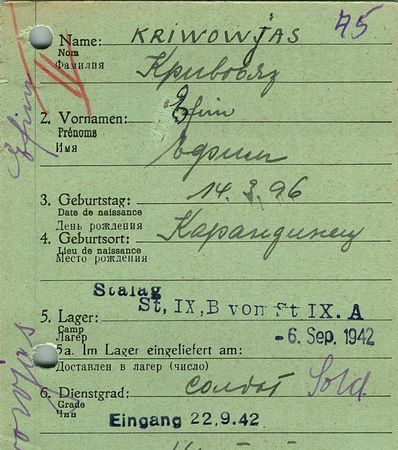 Name: KRIWOWJAS 45
Nom
Фамилия Кривовяз
2. Vornamen: Efim
Prénoms
Имя Ефим
3. Geburtstag: 14.3.96
Date de naissance
День рождения
4. Geburtsort: Карандинец
Lieu de naissance
Место рождения
Stalag
St, IX, B von St IX. A
5. Lager:
Camp
Лагерь
- 6. Sep. 1942
5a. Im Lager eingeliefert am:
Доставлен в лагерь (число)
6. Dienstgrad: солдат Sold
Grade
Чин
Eingang 22.9.42
Efim